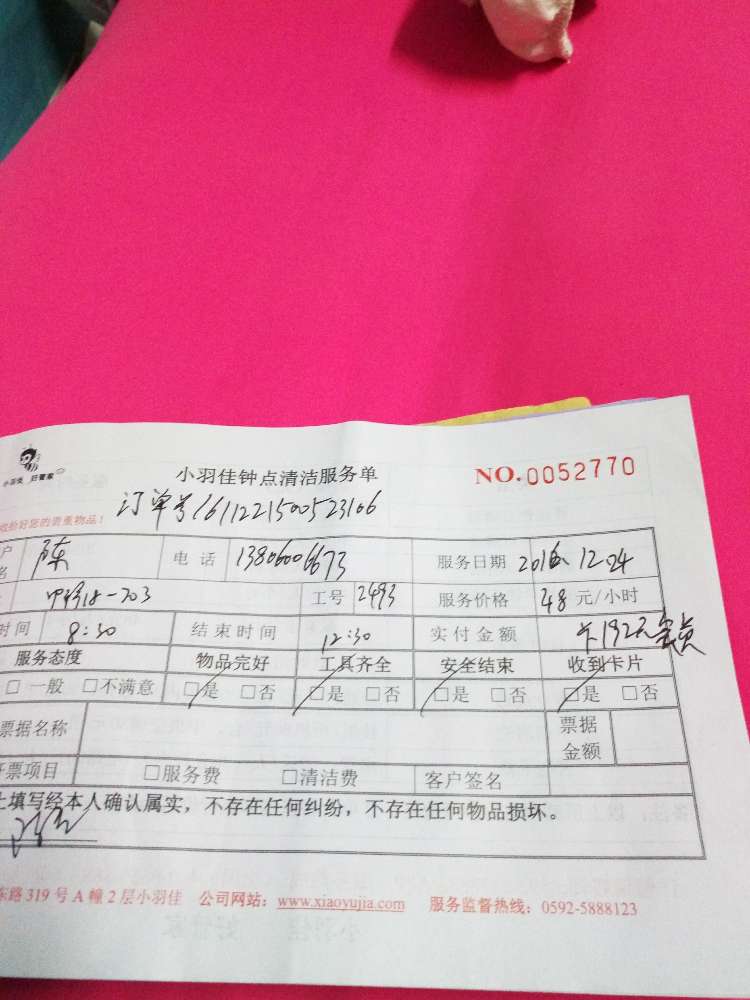 小羽佳 好管家
小羽佳钟点清洁服务单 NO.0052770
收拾好您的贵重物品!
订单号1611221500523106
户名 陈 电话 13806006673 服务日期 2016.12.24
18-203 工号 2493 服务价格 48 元/小时
时间 8:30 结束时间 12:30 实付金额 卡192元
服务态度 物品完好 工具齐全 安全结束 收到卡片
□一般 □不满意 □是 □否 □是 □否 □是 □否 □是 □否
票据名称 票据金额
开票项目 □服务费 □清洁费 客户签名
上填写经本人确认属实，不存在任何纠纷，不存在任何物品损坏。
东路319号A幢2层小羽佳 公司网站：www.xiaoyujia.com 服务监督热线：0592-5888123